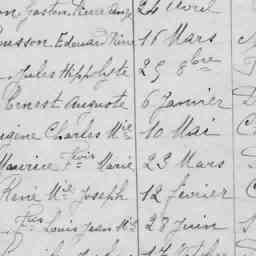 Gaston Pierre 24 Avril
Edouard René 15 Mars
Jules Hippolyte 25 8bre
Ernest Auguste 6 Janvier
Eugène Charles Mie 10 Mai
Maurice Fois Marie 23 Mars
René Mie Joseph 12 février
Fois Louis Jean Mie 28 Juin
17